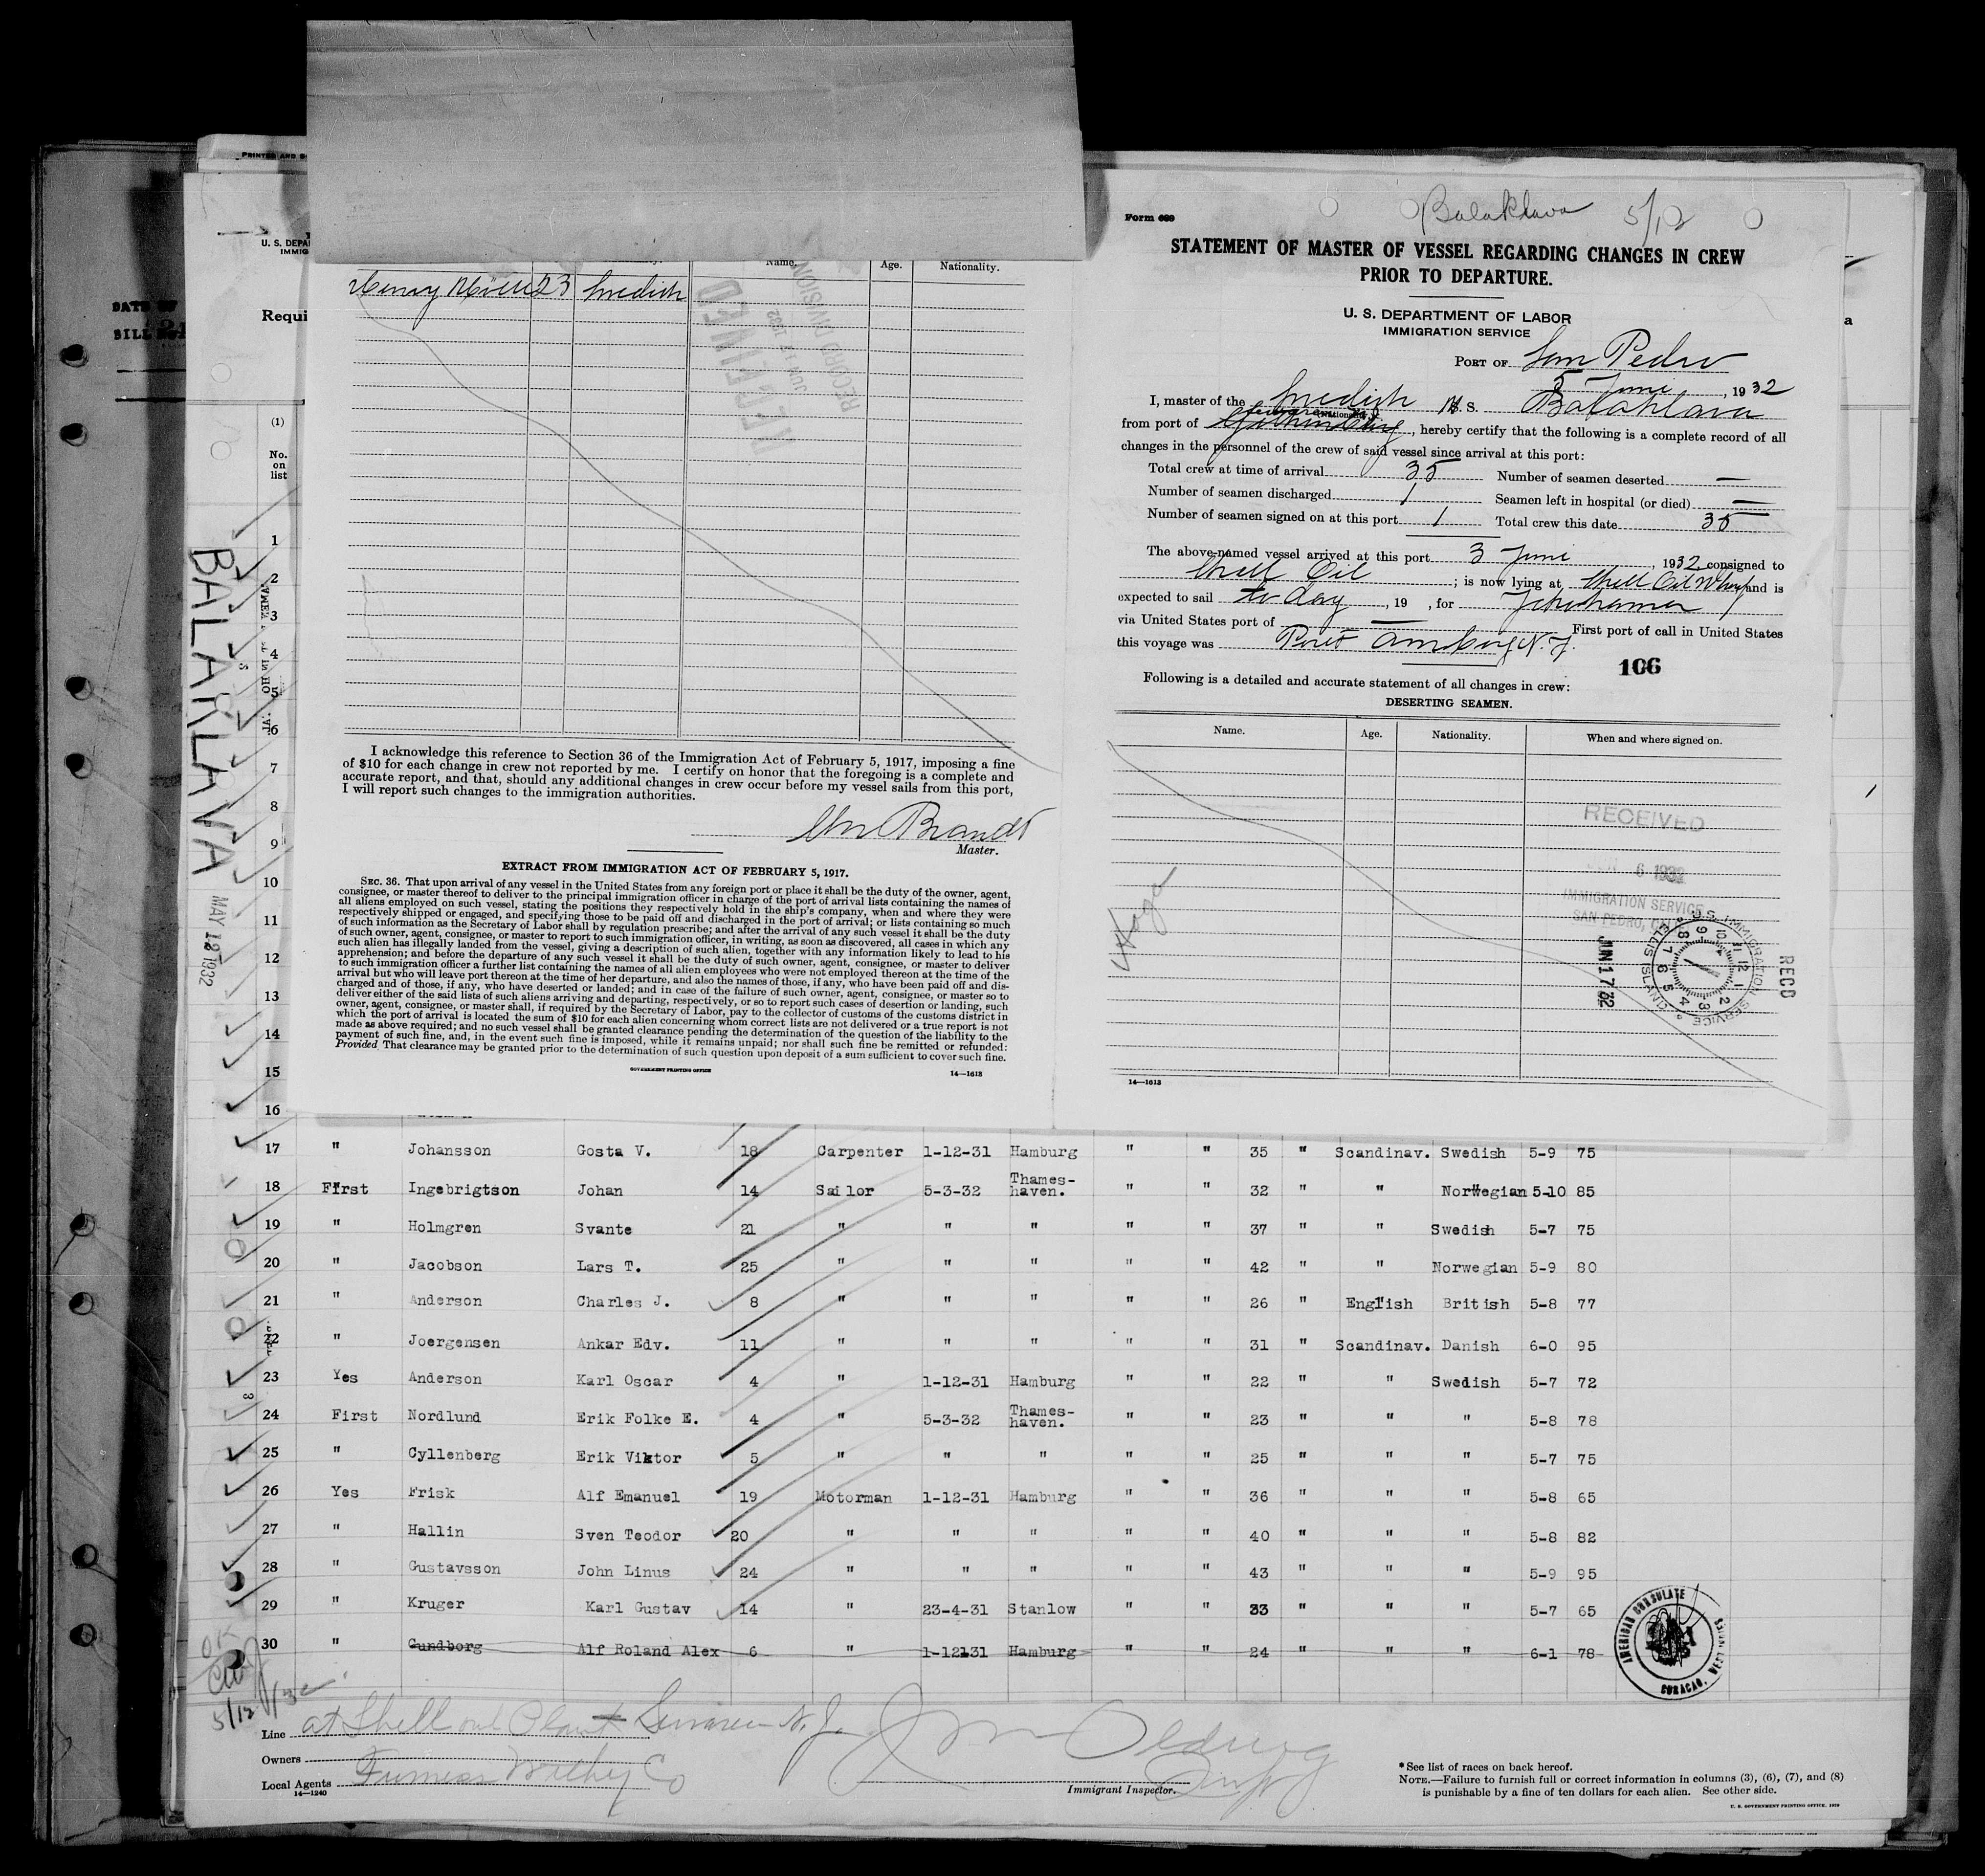 PRINTED AND S
U. S. DEPA
IMMIG
DATE OF
BILL
Requi
(1)
No. on list
BALAKLAVA
MAY 12 1932
Name. Age. Nationality.
23 Swedish
RECEIVED
JUN 17 1932
RECORD DIVISION
I acknowledge this reference to Section 36 of the Immigration Act of February 5, 1917, imposing a fine
of $10 for each change in crew not reported by me. I certify on honor that the foregoing is a complete and
accurate report, and that, should any additional changes in crew occur before my vessel sails from this port,
I will report such changes to the immigration authorities.
Brandt
Master.
EXTRACT FROM IMMIGRATION ACT OF FEBRUARY 5, 1917.
SEC. 36. That upon arrival of any vessel in the United States from any foreign port or place it shall be the duty of the owner, agent,
consignee, or master thereof to deliver to the principal immigration officer in charge of the port of arrival lists containing the names of
all aliens employed on such vessel, stating the positions they respectively hold in the ship's company, when and where they were
respectively shipped or engaged, and specifying those to be paid off and discharged in the port of arrival; or lists containing so much
of such information as the Secretary of Labor shall by regulation prescribe; and after the arrival of any such vessel it shall be the duty
of such owner, agent, consignee, or master to report to such immigration officer, in writing, as soon as discovered, all cases in which any
such alien has illegally landed from the vessel, giving a description of such alien, together with any information likely to lead to his
apprehension; and before the departure of any such vessel it shall be the duty of such owner, agent, consignee, or master to deliver
to such immigration officer a further list containing the names of all alien employees who were not employed thereon at the time of the
arrival but who will leave port thereon at the time of her departure, and also the names of those, if any, who have been paid off and dis-
charged and of those, if any, who have deserted or landed; and in case of the failure of such owner, agent, consignee, or master so to
deliver either of the said lists of such aliens arriving and departing, respectively, or so to report such cases of desertion or landing, such
owner, agent, consignee, or master shall, if required by the Secretary of Labor, pay to the collector of customs of the customs district in
which the port of arrival is located the sum of $10 for each alien concerning whom correct lists are not delivered or a true report is not
made as above required; and no such vessel shall be granted clearance pending the determination of the question of the liability to the
payment of such fine, and, in the event such fine is imposed, while it remains unpaid; nor shall such fine be remitted or refunded:
Provided That clearance may be granted prior to the determination of such question upon deposit of a sum sufficient to cover such fine.
GOVERNMENT PRINTING OFFICE 14—1613
Balaklava 5/12
Form 689
STATEMENT OF MASTER OF VESSEL REGARDING CHANGES IN CREW
PRIOR TO DEPARTURE.
U. S. DEPARTMENT OF LABOR
IMMIGRATION SERVICE
PORT OF San Pedro
5 June, 1932
I, master of the Swedish M. S. Balaklava
(Nationality.)
from port of , hereby certify that the following is a complete record of all
changes in the personnel of the crew of said vessel since arrival at this port:
Total crew at time of arrival 35 Number of seamen deserted —
Number of seamen discharged 1 Seamen left in hospital (or died) —
Number of seamen signed on at this port 1 Total crew this date 35
The above-named vessel arrived at this port 3 June 1932 consigned to
Shell Oil ; is now lying at Shell Oil Wharf and is
expected to sail to day, 19 , for Yokohama
via United States port of — First port of call in United States
this voyage was Port Amboy N. J.
106
Following is a detailed and accurate statement of all changes in crew:
DESERTING SEAMEN.
Name. Age. Nationality. When and where signed on.
RECEIVED
JUN 6 1932
IMMIGRATION SERVICE
SAN PEDRO, CAL.
U.S. IMMIGRATION SERVICE ELLIS ISLAND
RECD
JUN 17 32
14—1613
1
2
3
4
5
6
7
8
9
10
11
12
13
14
15
16
17 " Johansson Gosta V. 18 Carpenter 1-12-31 Hamburg " " 35 " Scandinav. Swedish 5-9 75
18 First Ingebrigtson Johan 14 Sailor 5-3-32 Thames-haven. " " 32 " " Norwegian 5-10 85
19 " Holmgren Svante 21 " " " " " 37 " " Swedish 5-7 75
20 " Jacobson Lars T. 25 " " " " " 42 " " Norwegian 5-9 80
21 " Anderson Charles J. 8 " " " " " 26 " English British 5-8 77
22 " Joergensen Ankar Edv. 11 " " " " " 31 " Scandinav. Danish 6-0 95
23 Yes Anderson Karl Oscar 4 " 1-12-31 Hamburg " " 22 " " Swedish 5-7 72
24 First Nordlund Erik Folke E. 4 " 5-3-32 Thames-haven. " " 23 " " " 5-8 78
25 " Cyllenberg Erik Viktor 5 " " " " " 25 " " " 5-7 75
26 Yes Frisk Alf Emanuel 19 Motorman 1-12-31 Hamburg " " 36 " " " 5-8 65
27 " Hallin Sven Teodor 20 " " " " " 40 " " " 5-8 82
28 " Gustavsson John Linus 24 " " " " " 43 " " " 5-9 95
29 " Kruger Karl Gustav 14 " 23-4-31 Stanlow " " 33 " " " 5-7 65
30 " Gundborg Alf Roland Alex 6 " 1-1231 Hamburg " " 24 " " " 6-1 78
AMERICAN CONSULATE CURACAO,
OK
5/12/32
Line at Shell oil Plant Sewaren N. J.
Owners
Local Agents Furness Withy Co
14—1240
Immigrant Inspector.
* See list of races on back hereof.
NOTE.—Failure to furnish full or correct information in columns (3), (6), (7), and (8)
is punishable by a fine of ten dollars for each alien. See other side.
U. S. GOVERNMENT PRINTING OFFICE. 1929